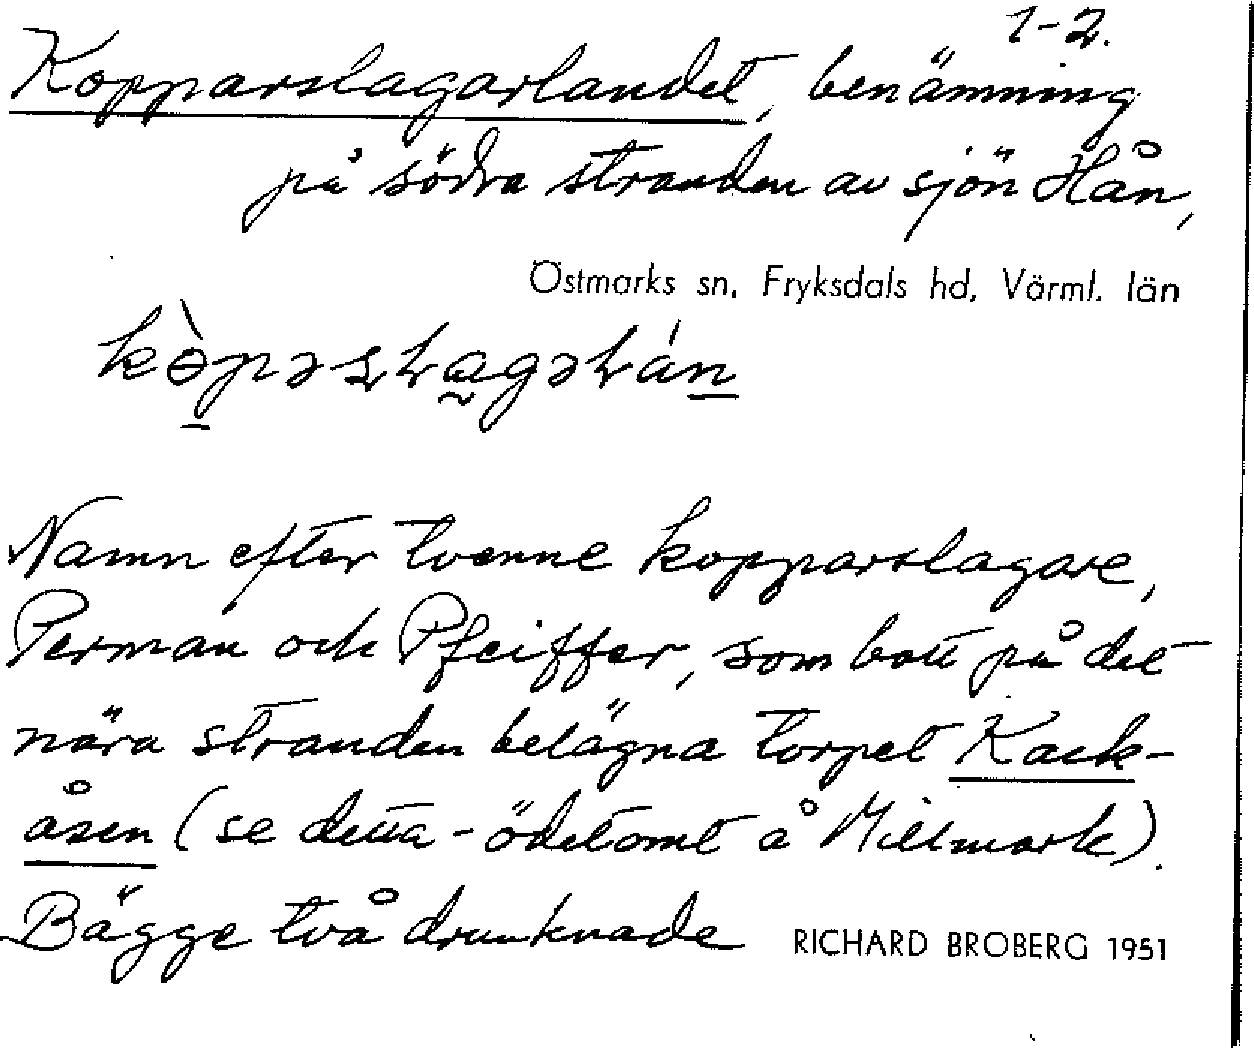 1-2.
Kopparslagarlandet, benämning
på södra stranden av sjön Hån,
Östmarks sn, Fryksdals hd, Värml. län
Namn efter tvenne kopparslagare,
Perman och Pfeiffer, som bott på det
nära stranden belägna torpet Kack-
åsen (se detta - ödetomt å Millmark).
Bägge två drunknade
RICHARD BROBERG 1951